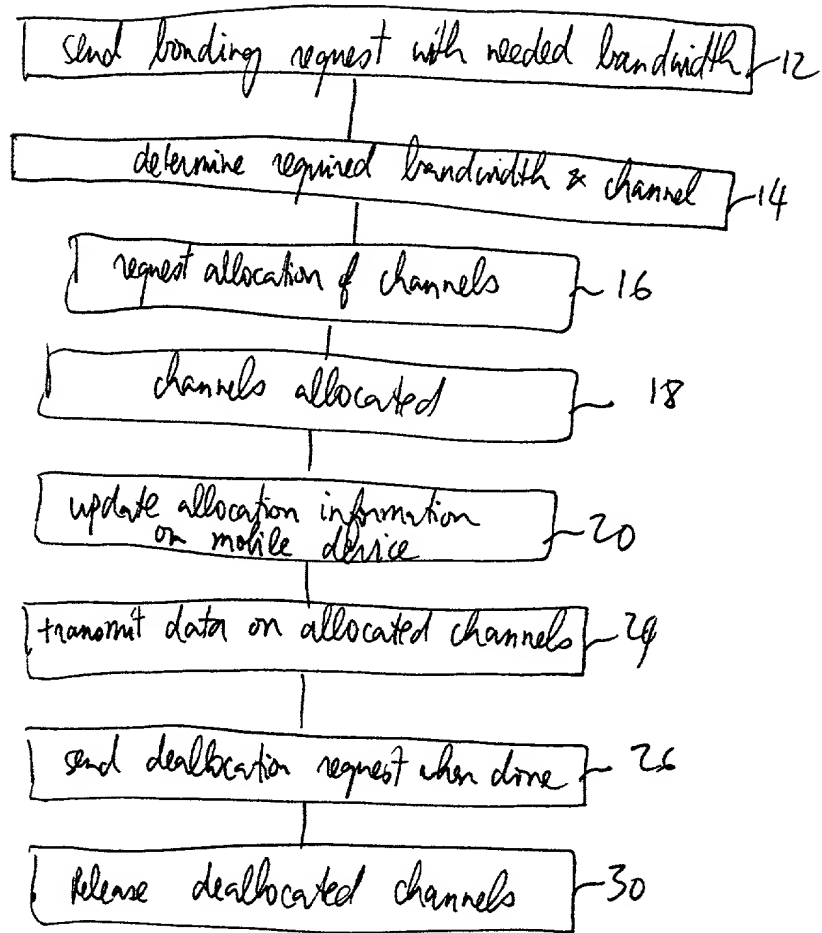 send bonding request with needed bandwidth 12
determine required bandwidth & channel 14
request allocation of channels 16
channels allocated 18
update allocation information
on mobile device 20
transmit data on allocated channels 24
send deallocation request when done 26
Release deallocated channels 30